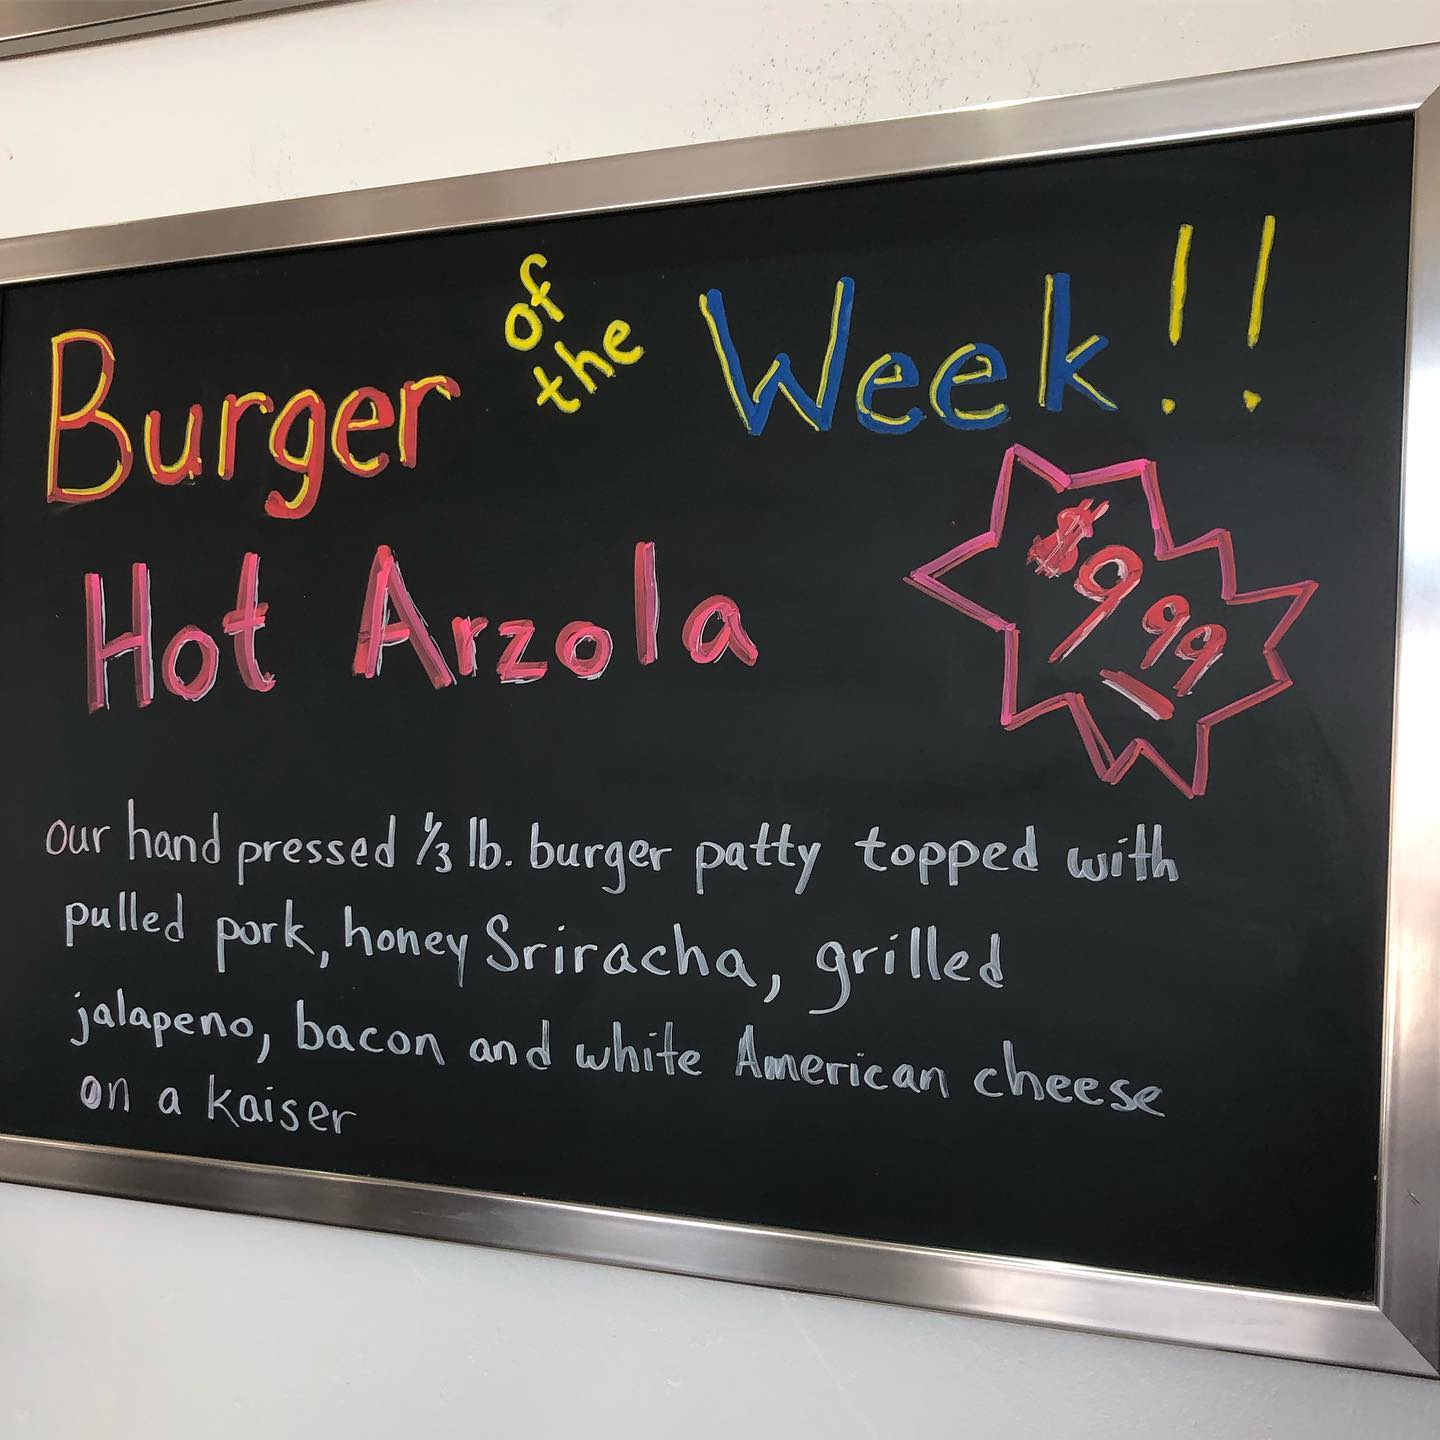 Burger of the Week!!
Hot Arzola
$9.99
our hand pressed 1/3 lb. burger patty topped with
pulled pork, honey Sriracha, grilled
jalapeno, bacon and white American cheese
on a kaiser